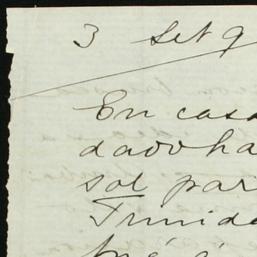 3 Set 9
En casa
dado ha
sol par
Trinida